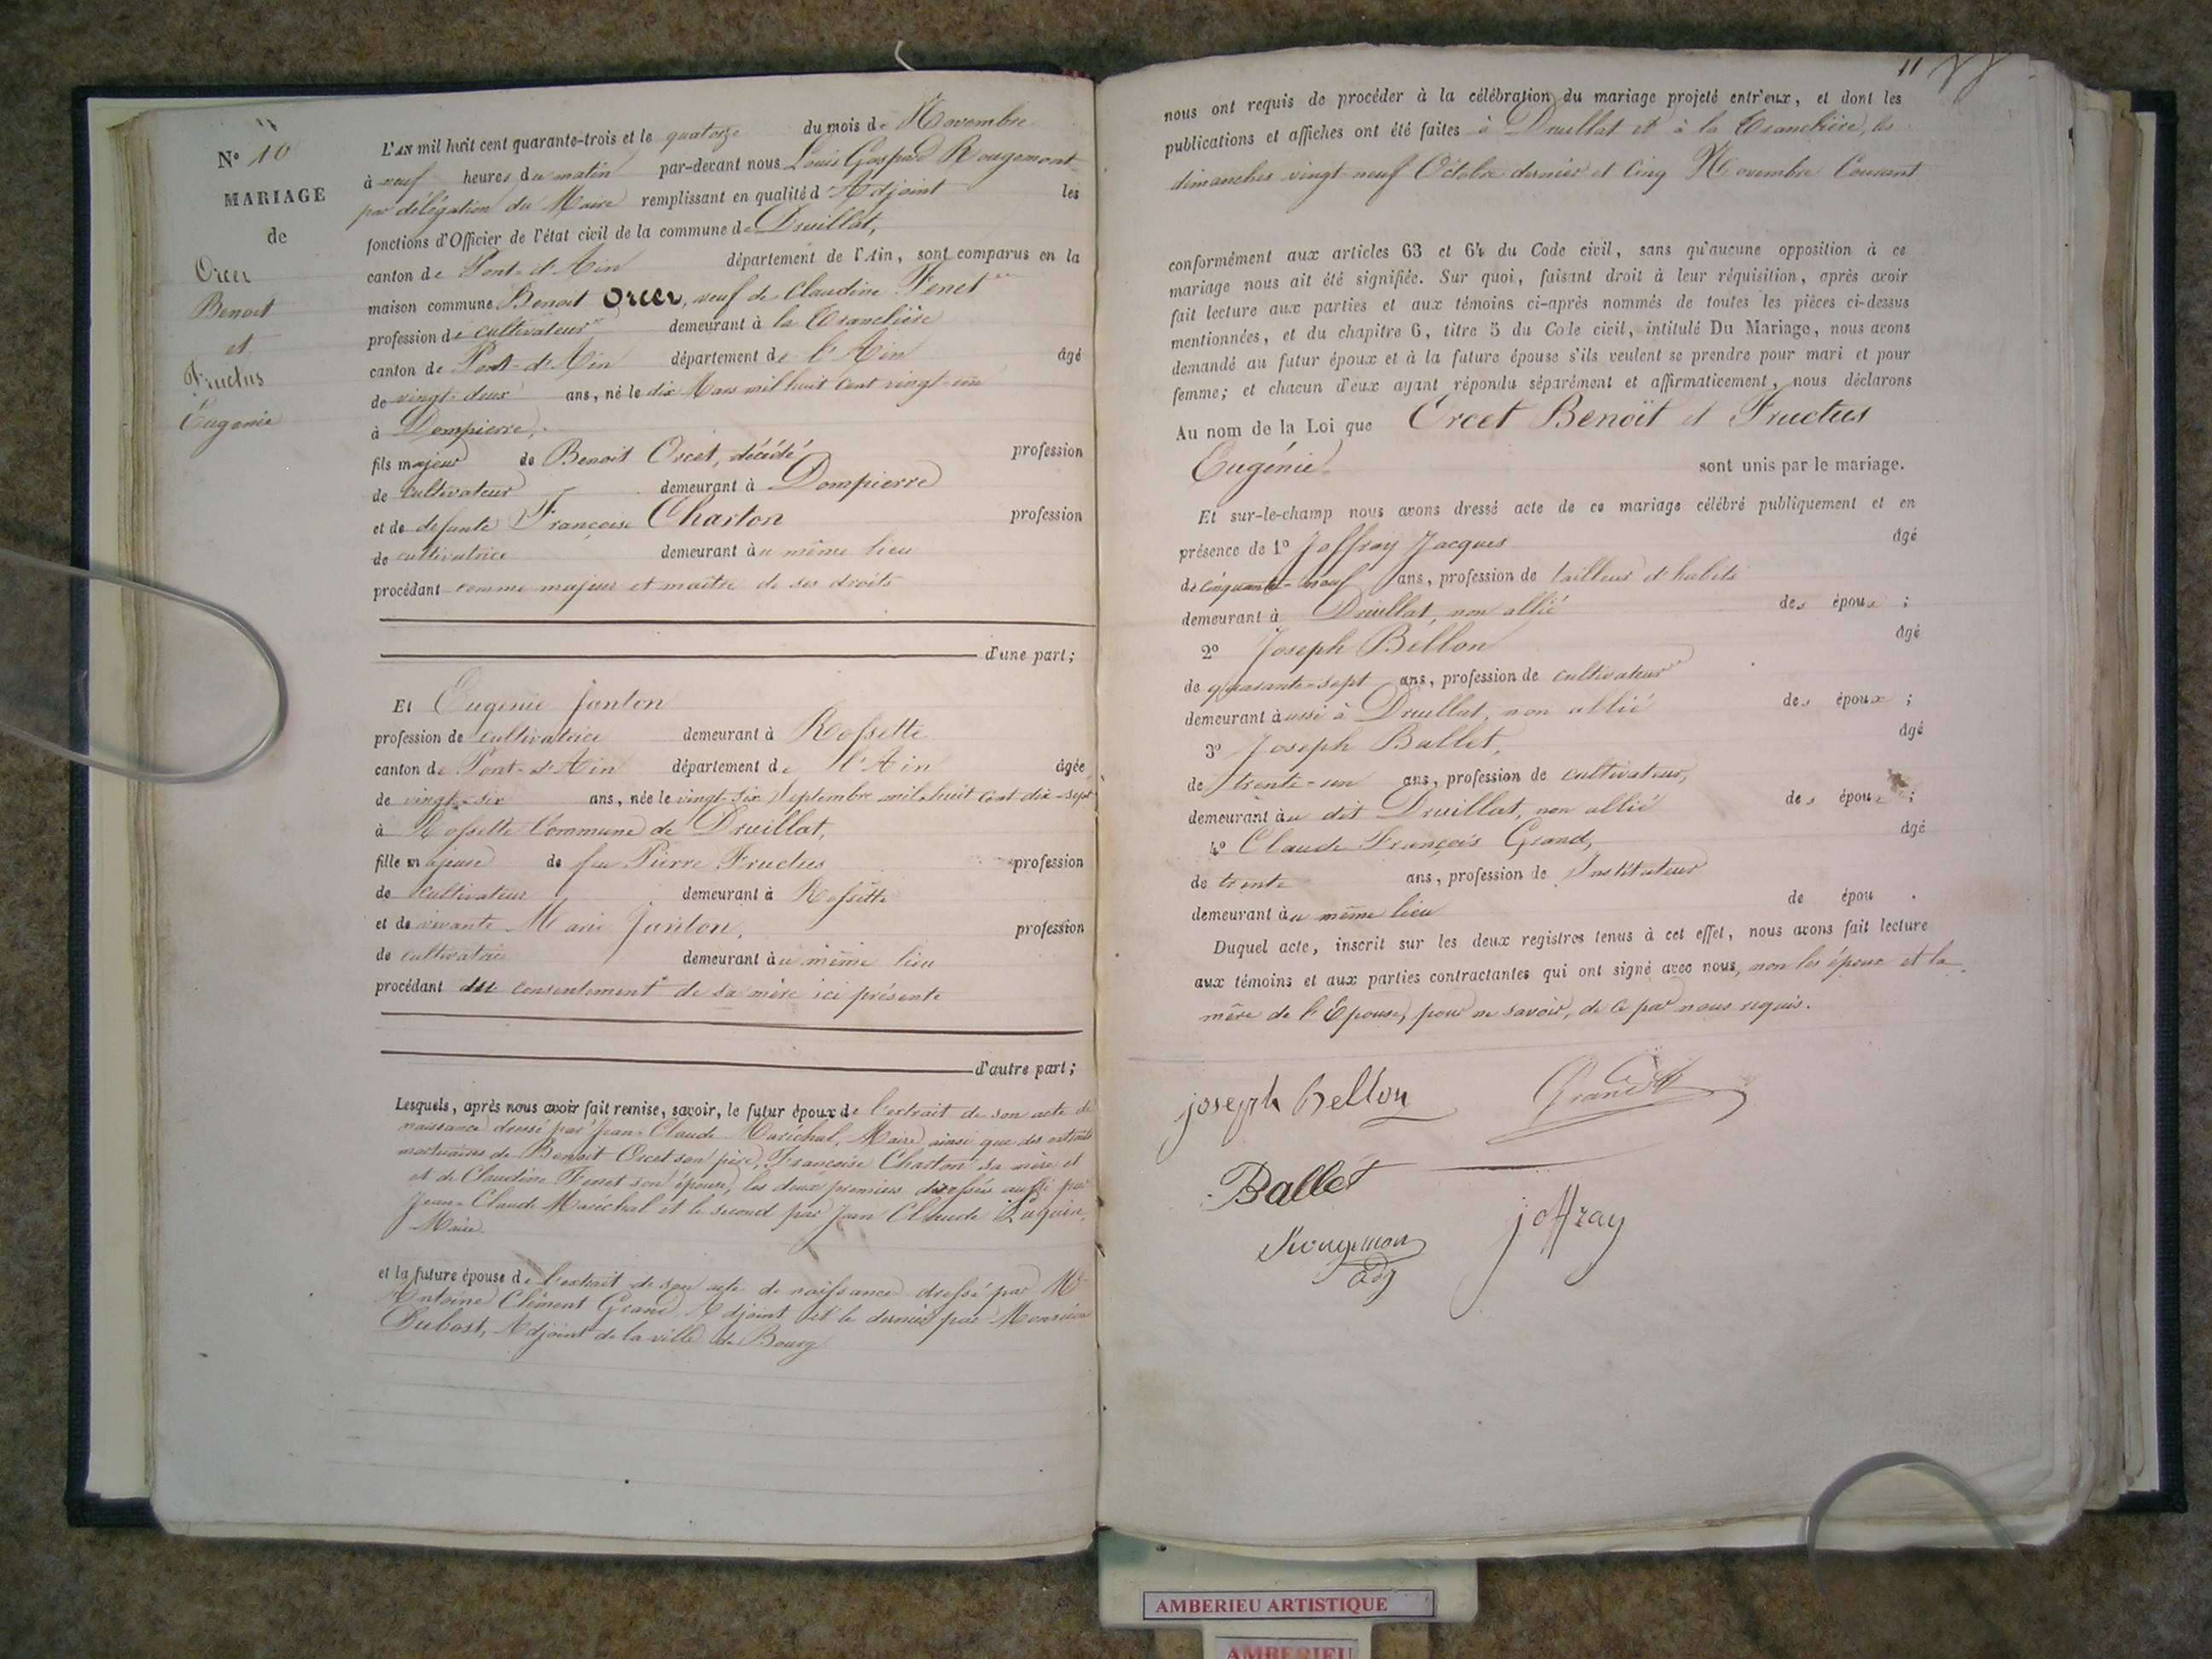 N° 10
MARIAGE
de
Orcet
Benoit
et
Fructus
Eugénie
L'AN mil huit cent quarante-trois et le quatorze du mois de Novembre
à neuf heures du matin par-devant nous Louis Gaspard Rougemont
par délégation du Maire remplissant en qualité d'Adjoint les
fonctions d'Officier de l'état civil de la commune de Druillat,
canton de Pont-d'Ain département de l'Ain, sont comparus en la
maison commune Benoit Orcet, veuf de Claudine Fenet
profession de cultivateur demeurant à la Tranclière
canton de Pont-d'Ain département de l'Ain âgé
de vingt-deux ans, né le dix Mars mil huit cent vingt-un
à Dompierre,
fils majeur de Benoit Orcet, décédé profession
de cultivateur demeurant à Dompierre
et de defunte Françoise Charton profession
de cultivatrice demeurant au même lieu
procédant comme majeur et maître de ses droits
d'une part;
Et Eugenie Janton
profession de cultivatrice demeurant à Rossette
canton de Pont-d'Ain département de l'Ain âgée
de vingt-six ans, née le vingt-six Septembre mil huit cent dix-sept
à Rossette Commune de Druillat,
fille majeure de feu Pierre Fructus profession
de cultivateur demeurant à Rossette
et de vivante Marie Janton, profession
de cultivatrice demeurant au même lieu
procédant du consentement de sa mère ici présente
d'autre part;
Lesquels, après nous avoir fait remise, savoir, le futur époux de l'extrait de son acte de
naissance dressé par Jean-Claude Maréchal, Maire ainsi que des extraits
mortuaires de Benoit Orcet son père, Françoise Charton sa mère et
et de Claudine Fenet son épouse, les deux premiers dressés aussi par
Jean-Claude Maréchal et le second par Jean Claude
Maire
et la future épouse de l'extrait de son acte de naissance dressé par Mr
Antoine Clément Grand Adjoint et le dernier par Monsieur
Dubost, Adjoint de la ville de Bourg
11
nous ont requis de procéder à la célébration du mariage projeté entr'eux, et dont les
publications et affiches ont été faites à Druillat et à la Tranclière, les
dimanches vingt-neuf Octobre dernier et Cinq Novembre Courant
conformément aux articles 63 et 64 du Code civil, sans qu'aucune opposition à ce
mariage nous ait été signifiée. Sur quoi, faisant droit à leur réquisition, après avoir
fait lecture aux parties et aux témoins ci-après nommés de toutes les pièces ci-dessus
mentionnées, et du chapitre 6, titre 5 du Code civil, intitulé Du Mariage, nous avons
demandé au futur époux et à la future épouse s'ils veulent se prendre pour mari et pour
femme; et chacun d'eux ayant répondu séparément et affirmativement, nous déclarons
Au nom de la Loi que Orcet Benoït et Fructus
Eugénie sont unis par le mariage.
Et sur-le-champ nous avons dressé acte de ce mariage célébré publiquement et en
présence de 1° Joffray Jacques âgé
de cinquante-neuf ans, profession de tailleur d'habits
demeurant à Druillat, non allié des époux ;
2° Joseph Bellon âgé
de quarante-sept ans, profession de cultivateur
demeurant aussi à Druillat, non allié des époux ;
3° Joseph Ballet, âgé
de trente-un ans, profession de cultivateur,
demeurant au dit Druillat, non allié des époux ;
4° Claude François Grand, âgé
de trente ans, profession de Instituteur
demeurant au même lieu de épou .
Duquel acte, inscrit sur les deux registres tenus à cet effet, nous avons fait lecture
aux témoins et aux parties contractantes qui ont signé avec nous, non les époux et la
mère de l'Epouse, pour ne savoir, de ce par nous requis.
joseph Bellon
Grand
Ballet
joffray
Rougemon
adj
AMBERIEU ARTISTIQUE
AMBERIEU